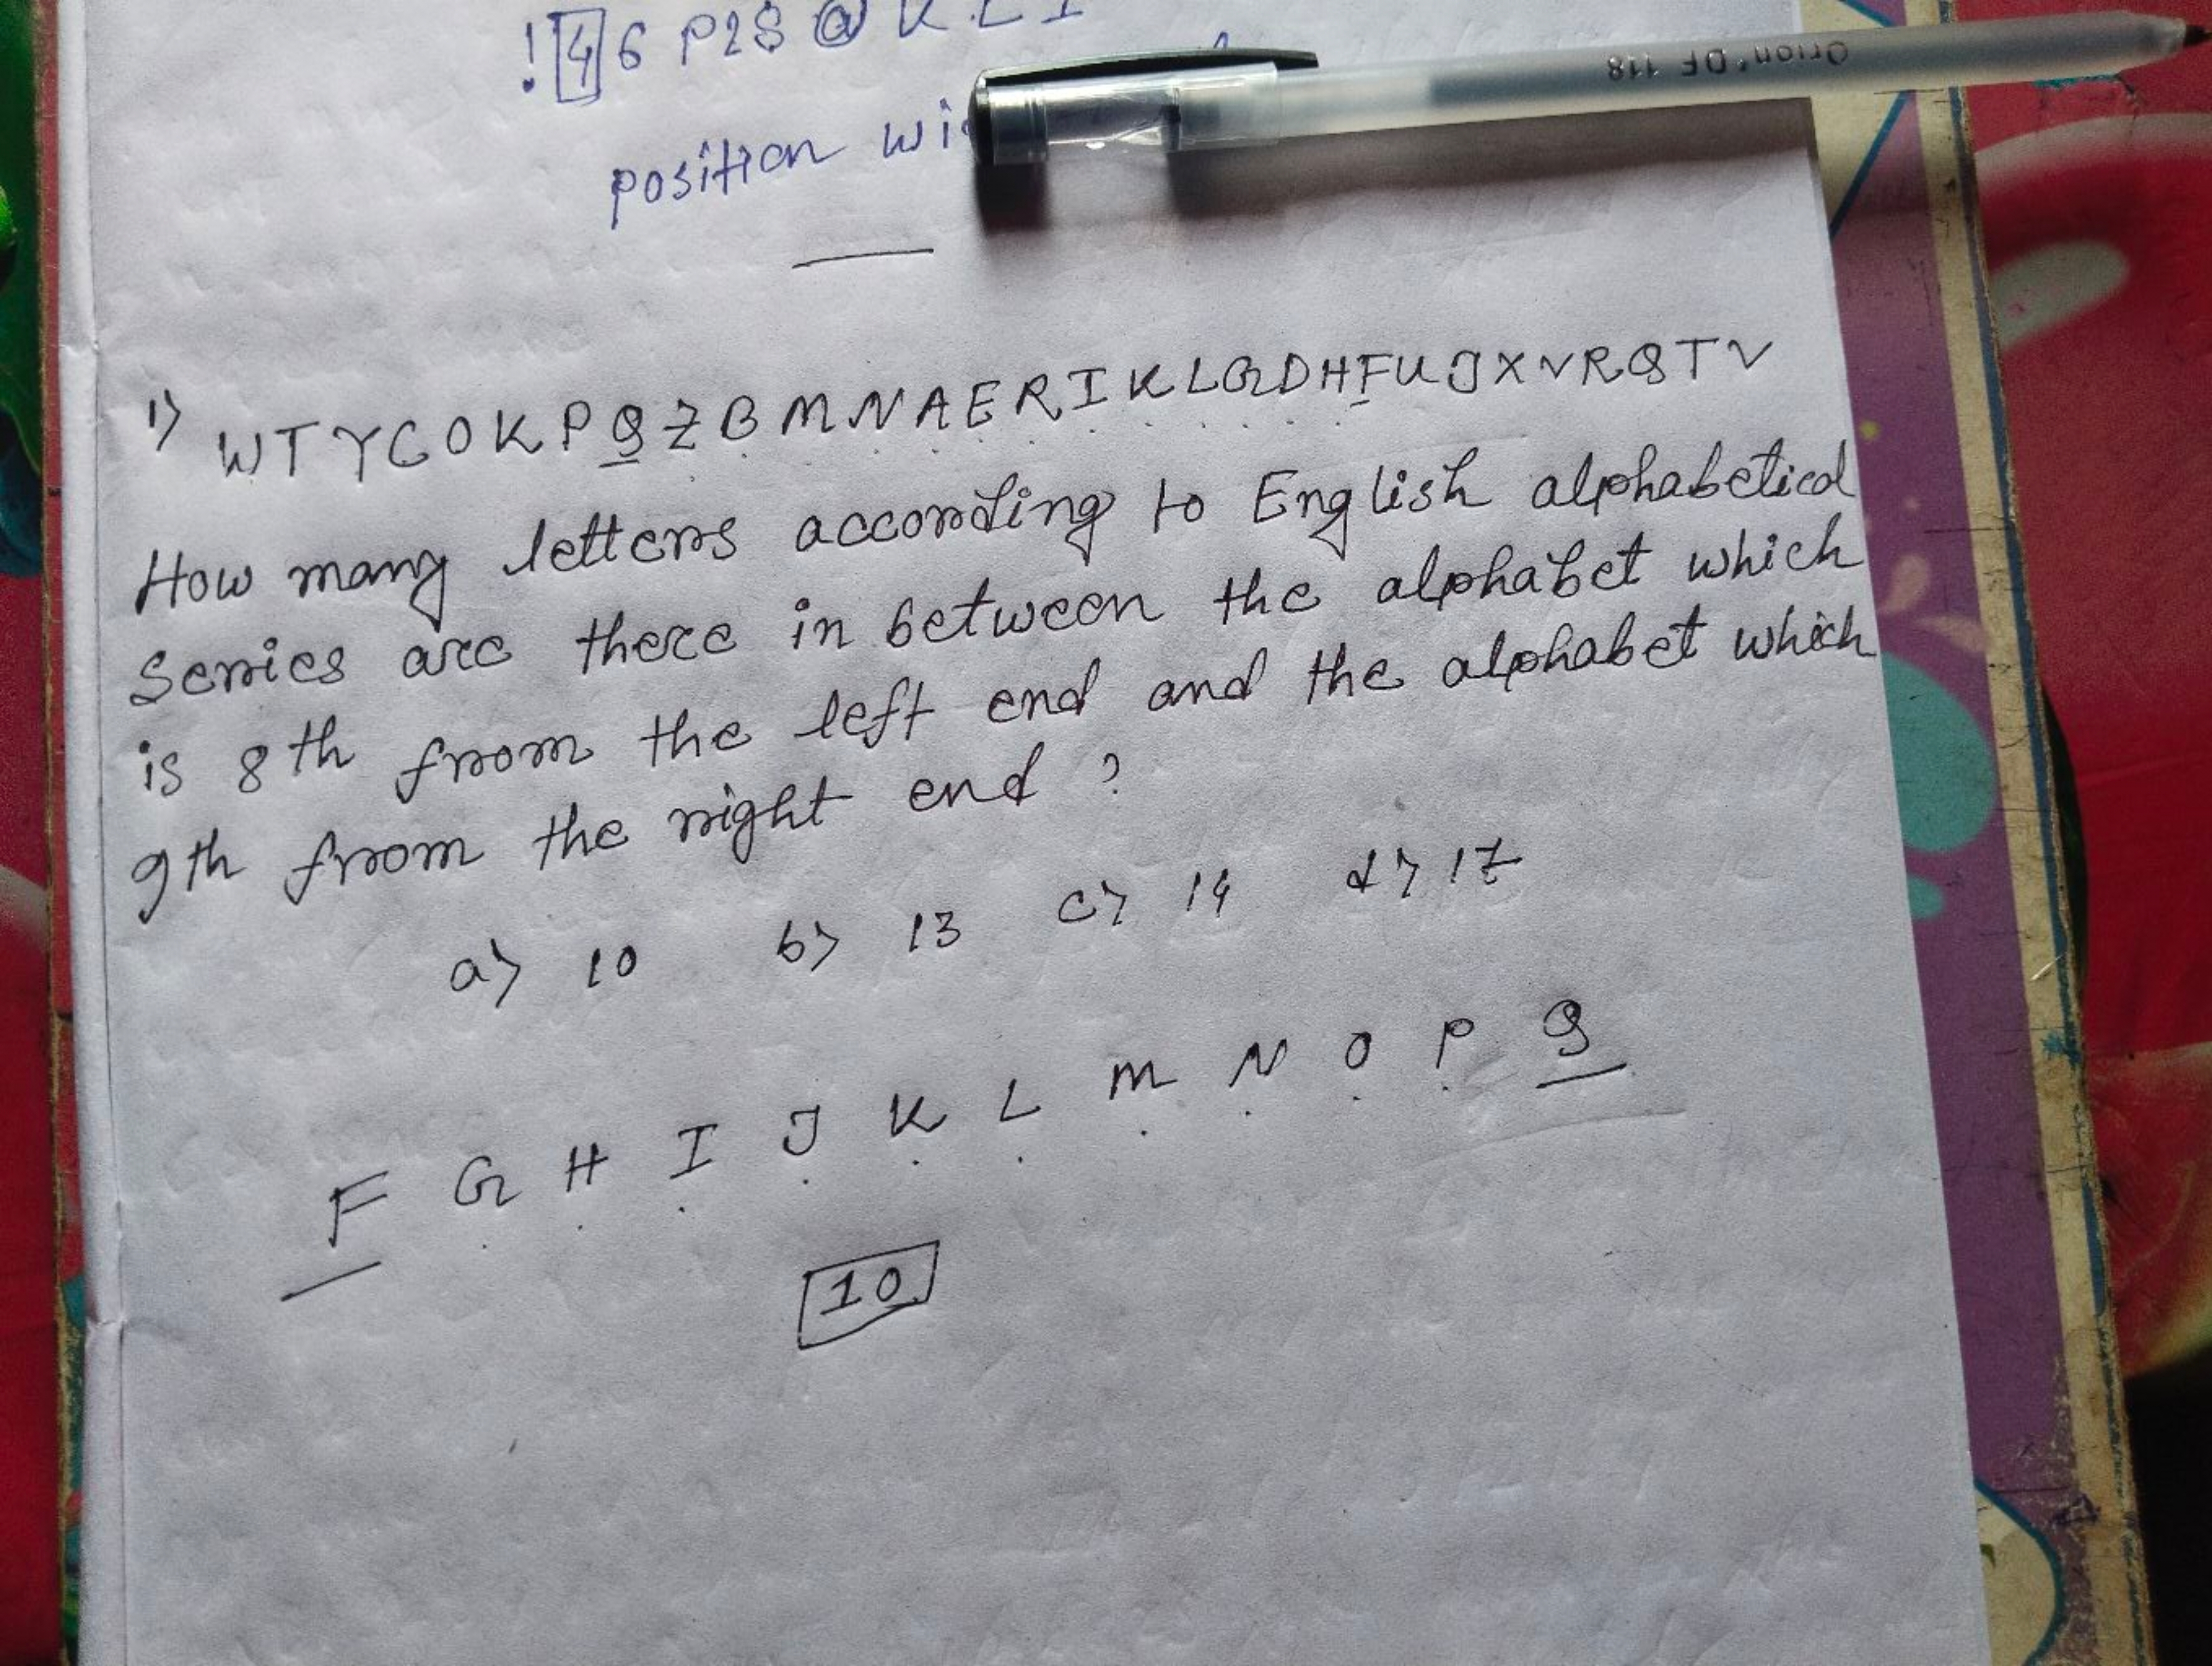 ! 4 6 P 2 S @ K L I
position
1) W T Y C O K P Q Z B M N A E R I K L G D H F U J X V R Q T V
How many letters according to English alphabetical
Series are there in between the alphabet which
is 8th from the left end and the alphabet which
9th from the right end ?
a) 10 b) 13 c) 14 d) 17
F G H I J K L M N O P Q
10
Orion DF 118